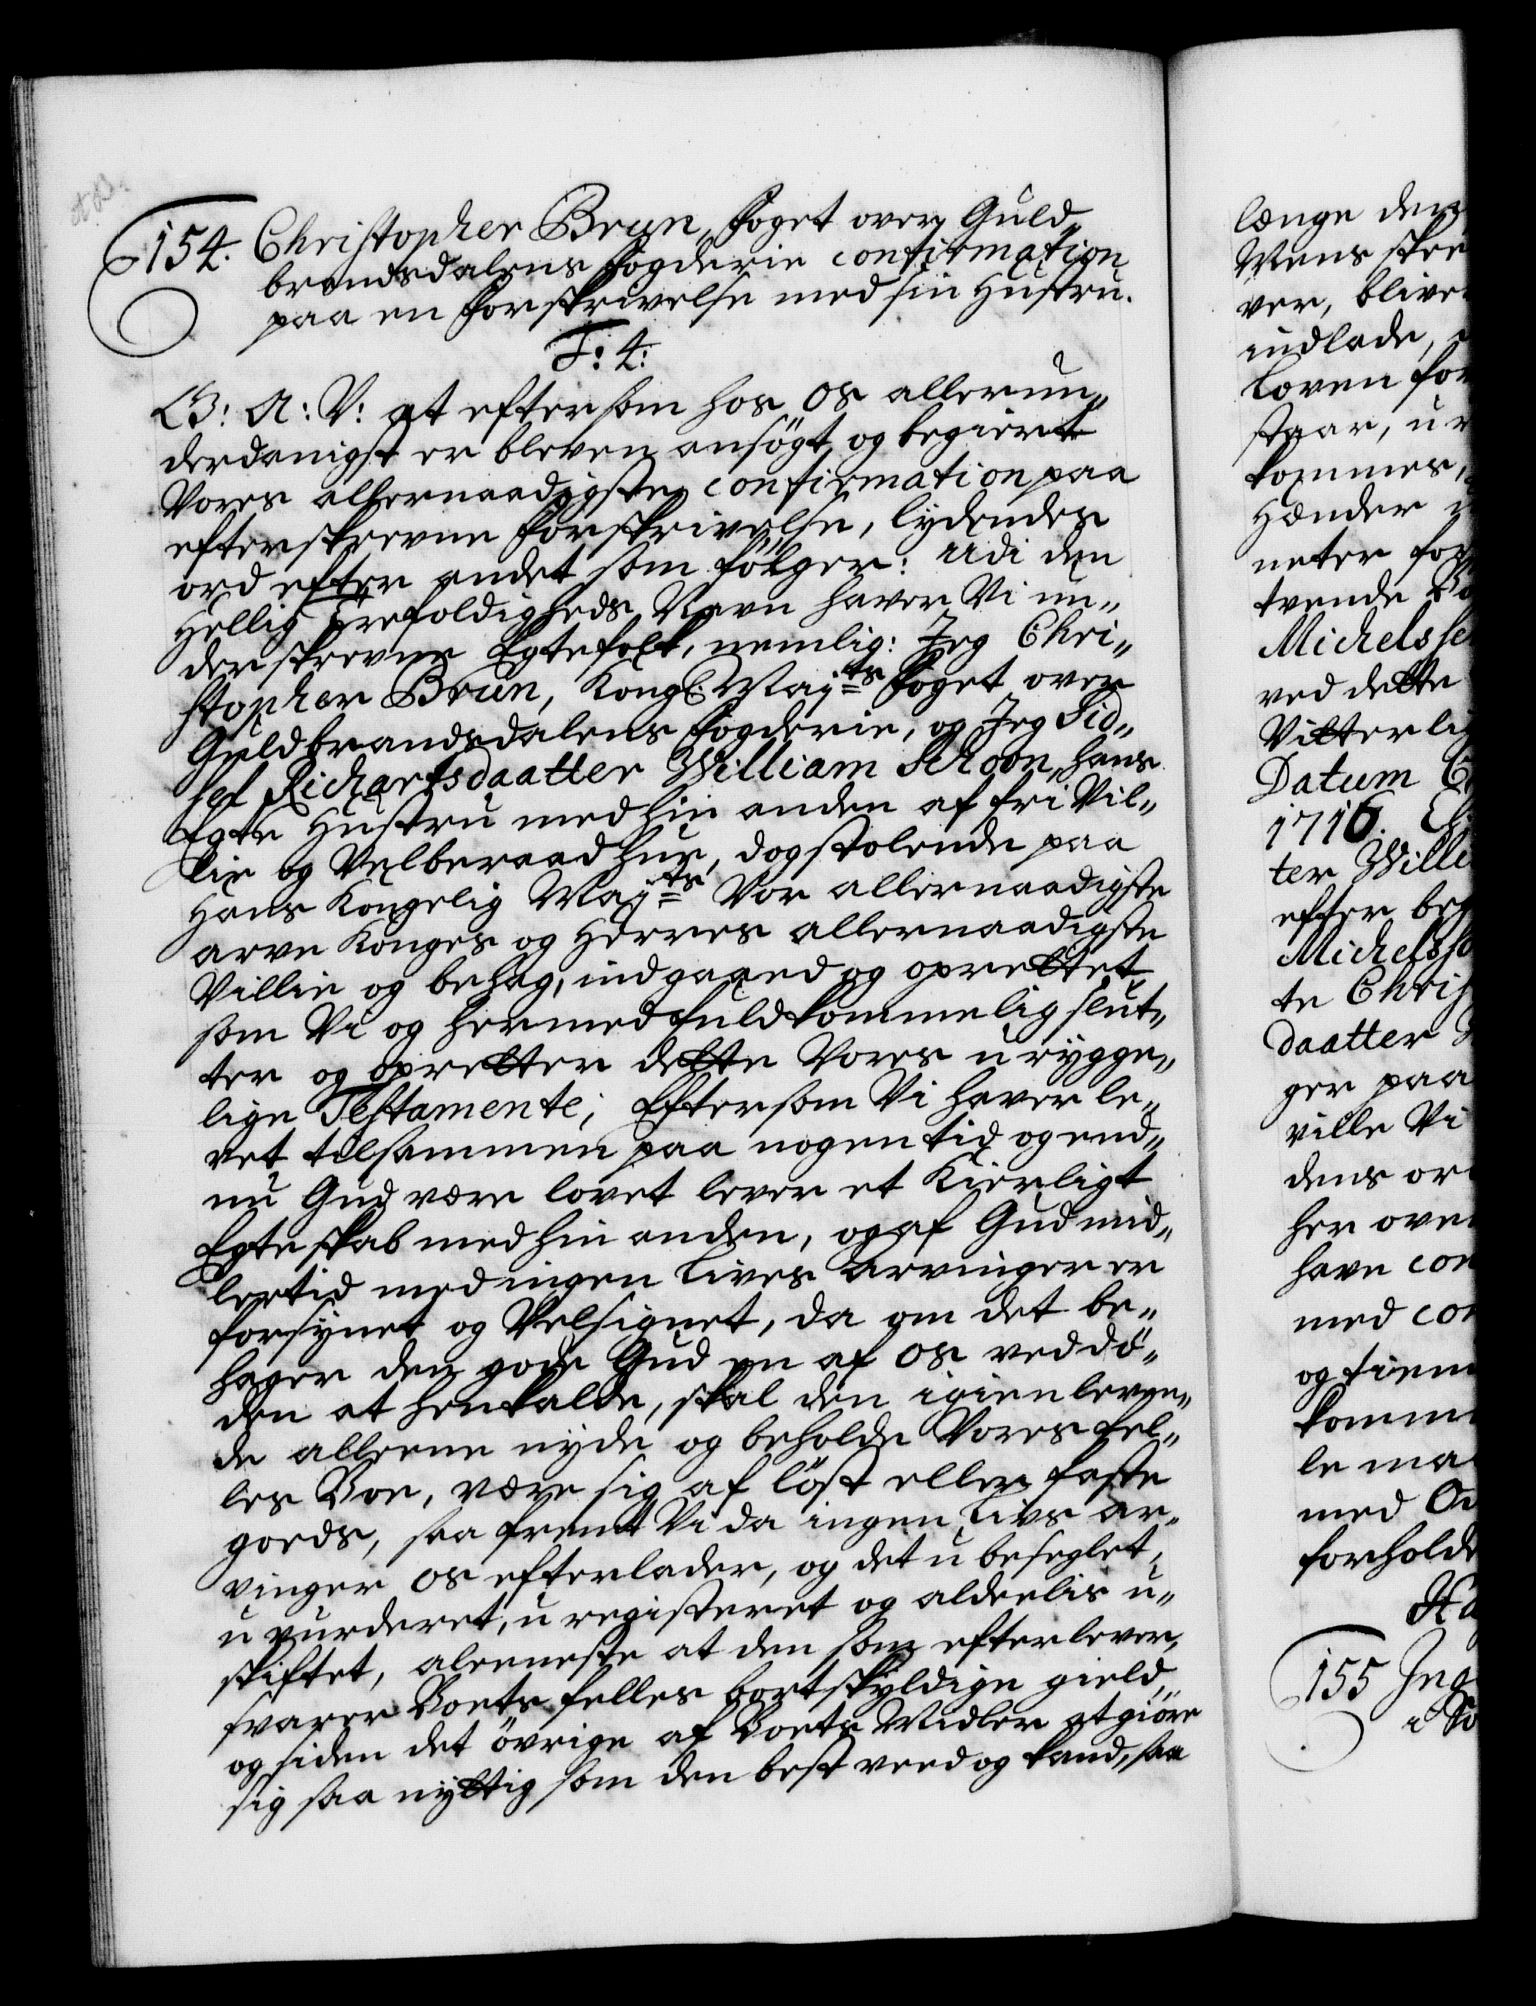 154. Christopher Brun, Foget over Guld„
brandsdalens Fogderie confirmation
paa en Forskrivelse med sin Hustru.
F: 4:
G: A: V: at eftersom hos os allerun„
derdanigst er bleven ansögt og begiert
Vores allernaadigste confirmation paa
efterskrevne Forskrivelse, lydendes
ord efter andet som fölger: Udi den
Hellig Trefoldigheds Navn haver Vi un„
derskrevne Egtefolk, nemlig: Jeg Chri„
stopher Brun, Kongl: Maj:ts Foget over
Guldbrandsdalens Fogderie, og Jeg Sid„
sel Richartsdaatter William Schoon, hans
Egte Hustru med hin anden af fri Vil„
lie og Velberaad hue, dog stolende paa
Hans Kongelig Maj:ts Vor allernaadigste
arve Konges og Herres allernaadigste
Villie og behag, indgaaed og oprettet
som Vi og hermed fuldkommelig slut„
ter og opretter dette Vores urygge„
lige Testamente; Eftersom Vi haver le„
vet tilsammen paa nogen tid og end„
nu Gud være lovet lever et Kierligt
Egteskab med hin anden, og af Gud mid„
lertid med ingen Lives Arvinger er
forsynet og Velsignet, da om det be„
hager den gode Gud en af os ved dö„
den at henkalde, skal den igienleven„
de alleene nyde og beholde Vores fel„
les Boe, være sig af löst eller faste
goeds, saa fremt Vi da ingen Livs ar„
vinger os efterlader, og det u beseglet,
u vurderet, u registeret og aldeelis u„
skiftet, aleeneste at den som efterlever,
svarer Boets felles bortskyldige gield,
og siden det övrige af Boets Midler at giöre
sig saa nyttig som den best veed og kand, saa
længe den
Mens skre
ver, blive
indlade,
Loven for
staar, u
kommes,
Hænder
neter for
tvende
Michelsse
ved dette
Vitterlig
Datum
1716.
ter Willi
efter beg
Michelsso
te Chris
daatter
ger paa
ville Vi
dens or
her over
have con
med con
og tiene
komme
le ma
med
forholde
155 Jng